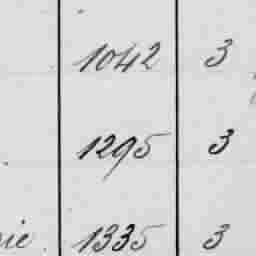 1042 3
1295 3
ie. 1335 3